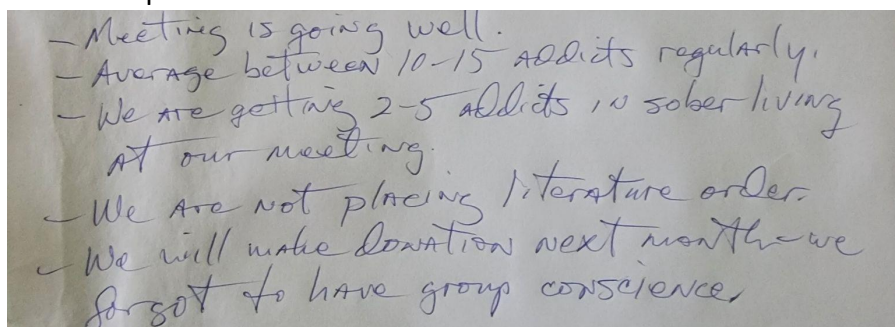 - Meeting is going well.
- Average between 10-15 addicts regularly.
- We are getting 2-5 addicts in sober living
at our meeting.
- We are not placing literature order.
- We will make donation next month - we
forgot to have group conscience.